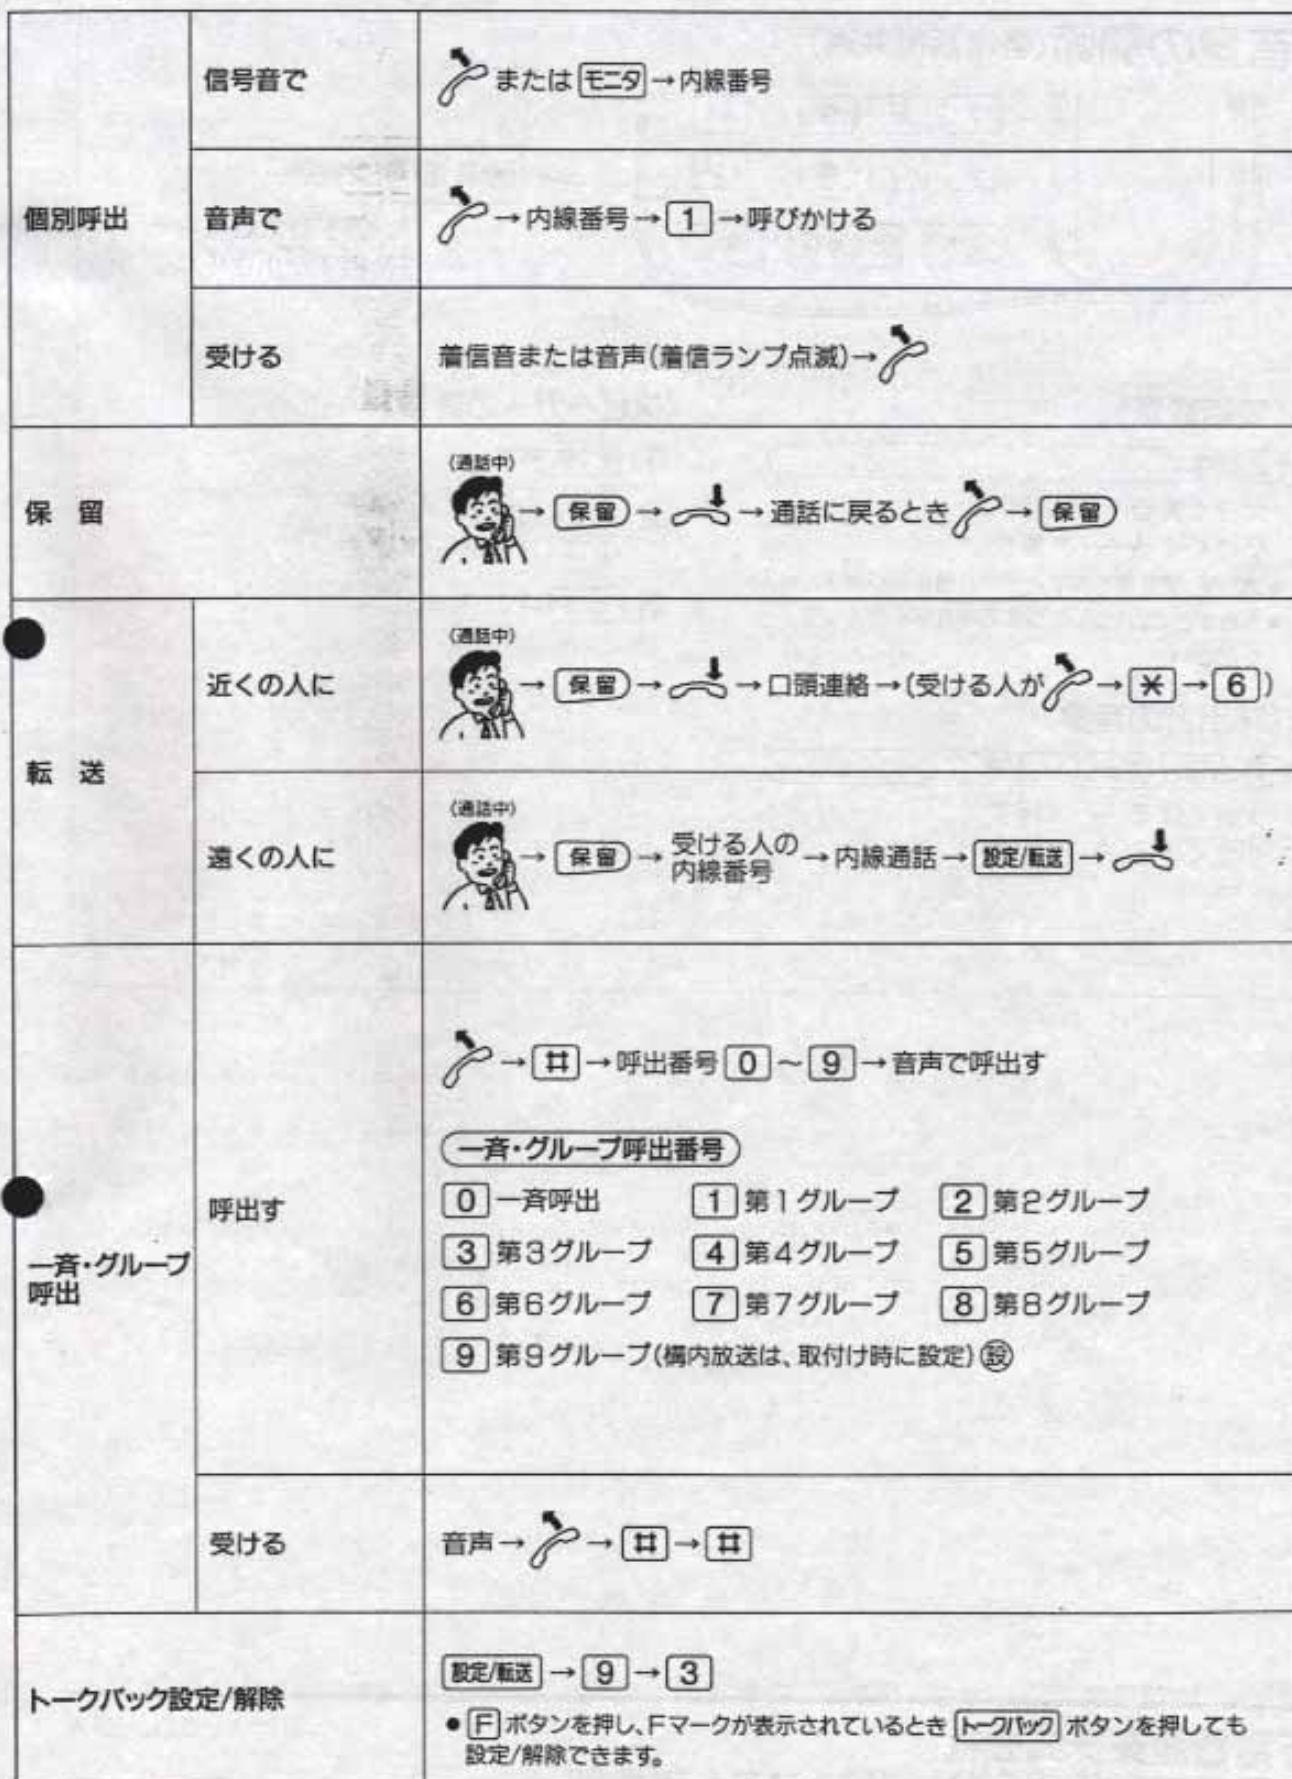 個別呼出
信号音で
または モニタ→内線番号
音声で
→内線番号→1→呼びかける
受ける
着信音または音声(着信ランプ点滅)→
保 留
(通話中)
→保留→→通話に戻るとき→保留
転 送
近くの人に
(通話中)
→保留→→口頭連絡→(受ける人が→＊→6)
遠くの人に
(通話中)
→保留→受ける人の
内線番号→内線通話→設定/転送→
一斉・グループ
呼出
呼出す
→#→呼出番号0～9→音声で呼出す
一斉・グループ呼出番号
0一斉呼出 1第1グループ 2第2グループ
3第3グループ 4第4グループ 5第5グループ
6第6グループ 7第7グループ 8第8グループ
9第9グループ(構内放送は、取付け時に設定)設
受ける
音声→→#→#
トークバック設定/解除
設定/転送→9→3
●Fボタンを押し、Fマークが表示されているときトークバックボタンを押しても
設定/解除できます。